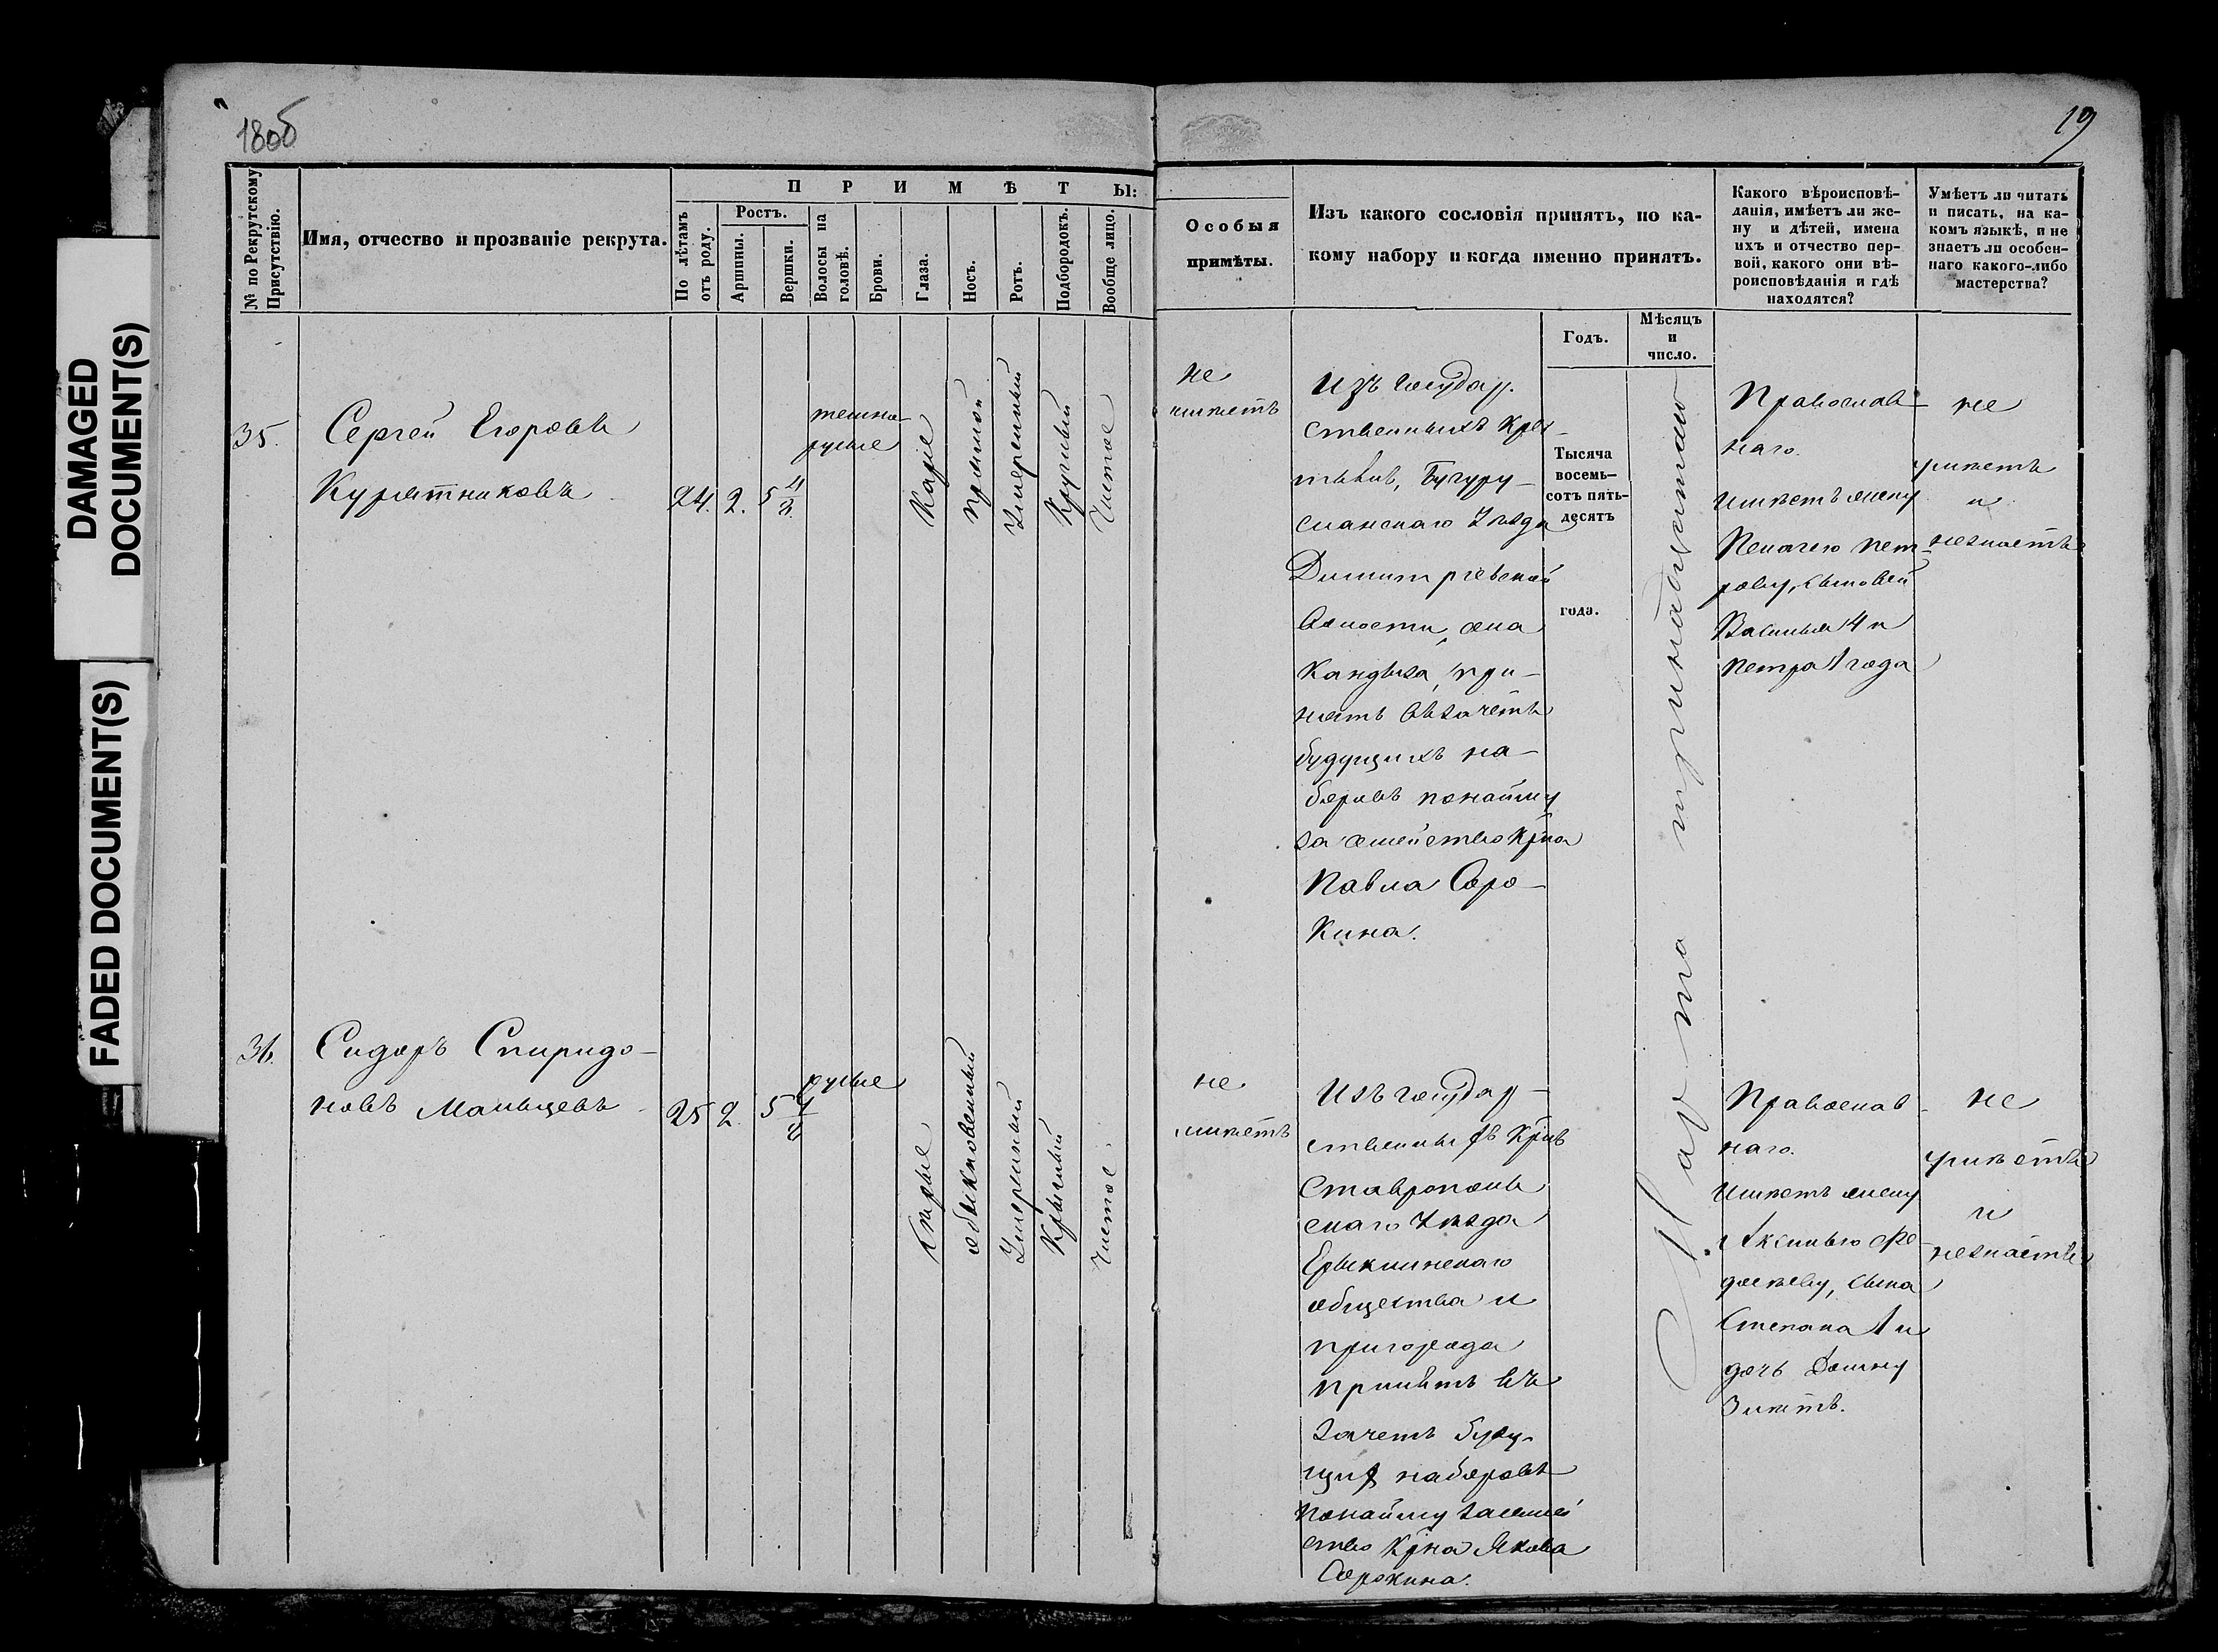 DAMAGED
DOCUMENT(S)
FADED DOCUMENT(S)
19
№ по Рекрутскому
Присутствію.
Имя, отчество и прозваніе рекрута.
П Р И М Ѣ Т Ы:
По лѣтамъ
отъ роду.
Ростъ.
Аршины.
Вершки.
Волосы на
головѣ.
Брови.
Глаза.
Носъ.
Ротъ.
Подбородокъ.
Вообще лицо.
Особыя
примѣты.
Изъ какого сословія принятъ, по ка-
кому набору и когда именно принятъ.
Годъ.
Мѣсяцъ
и
число.
Какого вѣроисповѣ-
данія, имѣетъ ли же-
ну и дѣтей, имена
ихъ и отчество пер-
вой, какого они вѣ-
роисповѣданія и гдѣ
находятся?
Умѣетъ ли читать
и писать, на ка-
комъ языкѣ, и не
знаетъ ли особен-
наго какого-либо
мастерства?
35.
Сергей Егоровъ
Курятниковъ
24.
2.
5
темно-
русые
Карие
прямой
Умеренный
Круглый
Чистое
не
имѣетъ
Изъ государ-
ственныхъ кре-
стьянъ, Бугуру-
сланскаго Уѣзда
Димитріевской
волости, села
Кандыза, при-
нятъ въ зачетъ
будущихъ на-
боровъ понайму
за семейство Кр-на
Павла Соро-
кина.
Тысяча
восемь-
сотъ пять-
десятъ
года.
Марта тринадцатаго
Православ-
наго.
Имѣетъ жену
Пелагею Пет-
рову, сыновей
Василья 4 и
Петра 1 года
не
умѣетъ
и
незнаетъ
36.
Сидоръ Спиридо-
новъ Мальцевъ
25
2.
5
русые
Серые
обыкновенный
Умеренный
Круглый
Чистое.
не
имѣетъ
Изъ государ-
ственныхъ Кр-нъ
Ставрополь
скаго Уѣзда
Ерыклинскаго
общества и
пригорода
принятъ въ
зачетъ буду-
щих наборовъ
понайму засемей
ство Кр-на Якова
Сорокина.
Православ-
наго.
Имѣетъ жену
Аксинью Фе-
досѣеву, сына
Степана 1 и
дочь
3 лѣтъ.
не
умѣетъ
и
незнаетъ